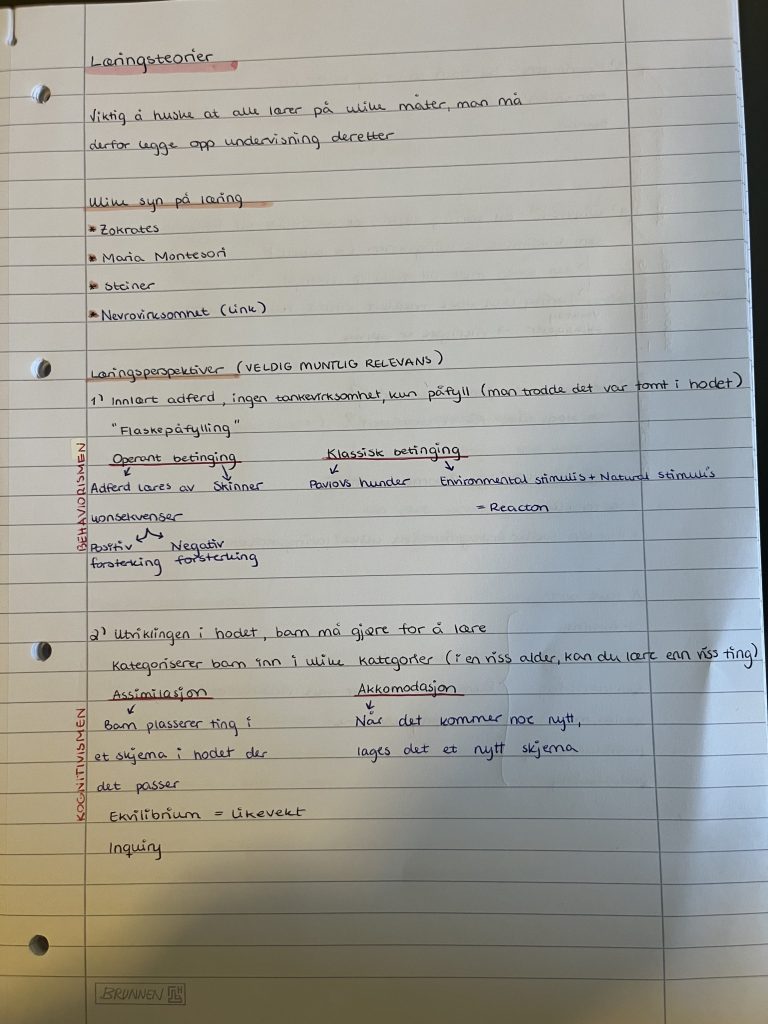 Læringsteorier
Viktig å huske at alle lærer på ulike måter, man må
derfor legge opp undervisning deretter
Ulike syn på læring
* Zokrates
* Maria Montesori
* Steiner
* Nevrovirksomhet (Link)
Læringsperspektiver (VELDIG MUNTLIG RELEVANS)
1) Innlært adferd, ingen tankevirksomhet, kun påfyll (man trodde det var tomt i hodet)
"Flaskepåfylling"
Operant betinging Klassisk betinging
Adferd læres av Skinner Pavlovs hunder Environmental stimulis + Natural stimulis
konsekvenser = Reacton
Positiv Negativ
forsterking forsterking
BEHAVIORISMEN
2) Utviklingen i hodet, barn må gjøre for å lære
Kategoriserer barn inn i ulike kategorier (i en viss alder, kan du lære enn viss ting)
Assimilasjon Akkomodasjon
Barn plasserer ting i Når det kommer noe nytt,
et skjema i hodet der lages det et nytt skjema
det passer
Ekvilibrium = Likevekt
Inquiry
KOGNITIVISMEN
BRUNNEN